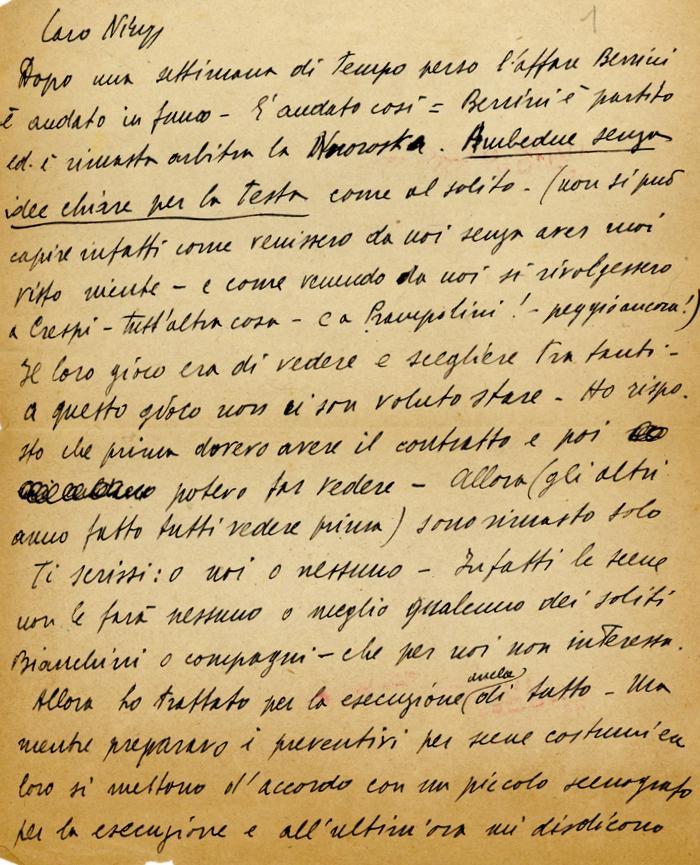 1
Caro
Dopo una settimana di tempo perso l'affare Berrini
è andato in fumo - E' andato così = Berrini è partito
ed è rimasta arbitra la Ambedue senza
idee chiare per la testa come al solito - (non si può
capire infatti come venissero da noi senza aver mai
visto niente - e come venendo da noi si rivolgessero
a Crespi - tutt'altra cosa - e a Prampolini! - peggio ancora!)
Il loro gioco era di vedere e scegliere tra tanti -
a questo gioco non ci son voluto stare - Ho rispo-
sto che prima dovevo avere il contratto e poi
potevo far vedere - Allora (gli altri
anno fatto tutti vedere prima) sono rimasto solo
Ti scrissi: o noi o nessuno - Infatti le scene
non le farà nessuno o meglio qualcuno dei soliti
Bianchini o compagni - che per noi non interessa.
Allora ho trattato per la esecuzione (anche di tutto - Ma
mentre preparavo i preventivi per scene costumi ecc
loro si mettono d'accordo con un piccolo scenografo
per la esecuzione e all'ultim'ora mi disdicono